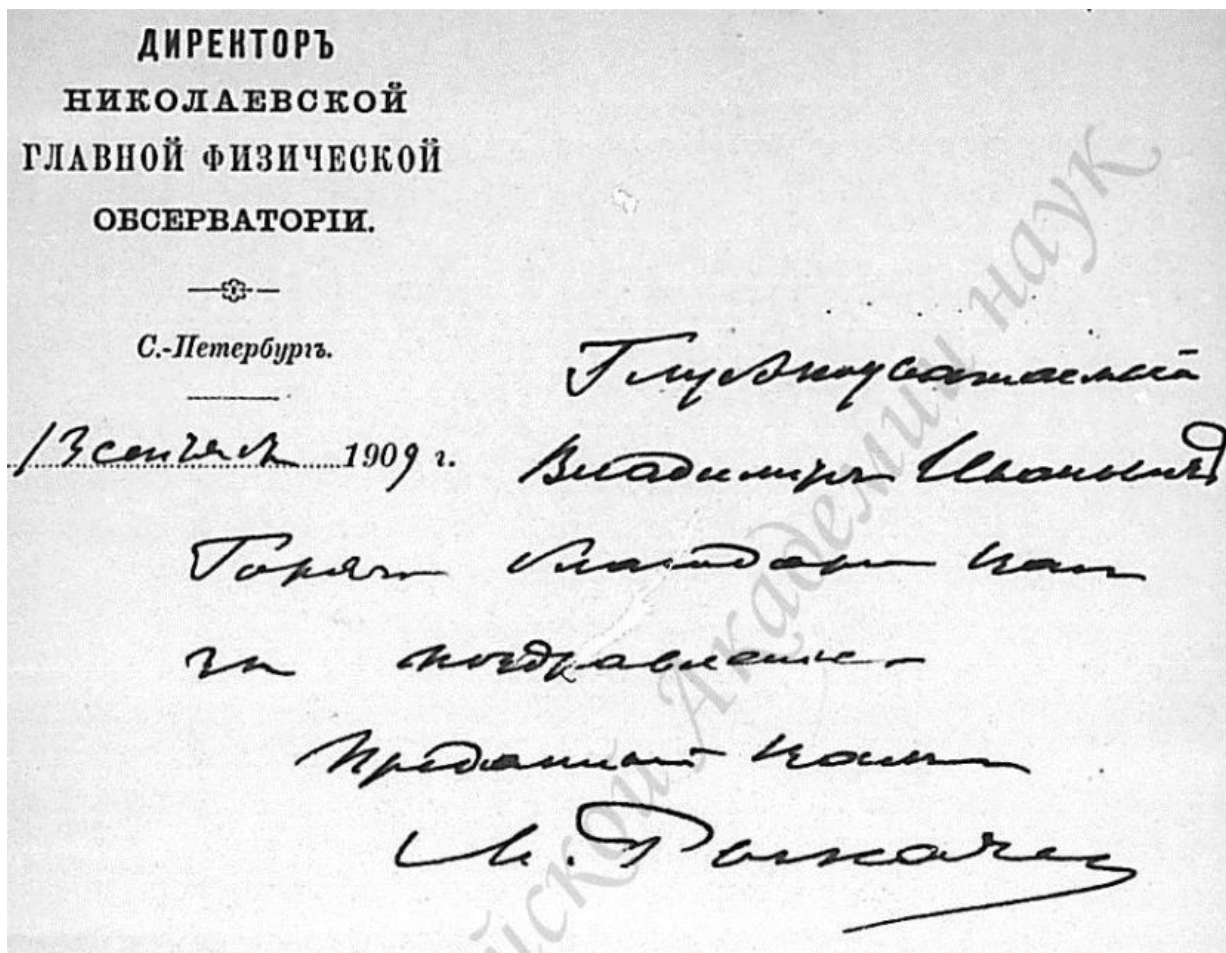 ДИРЕКТОРЪ
НИКОЛАЕВСКОЙ
ГЛАВНОЙ ФИЗИЧЕСКОЙ
ОБСЕРВАТОРІИ.
С.-Петербургъ.
13 сентября 1909 г.
Глубокоуважаемый
Владимиръ Ивановичъ
Горячо благодарю Вас
за поздравление
Преданный Вамъ
М. Рыкачев
йской Академии наук